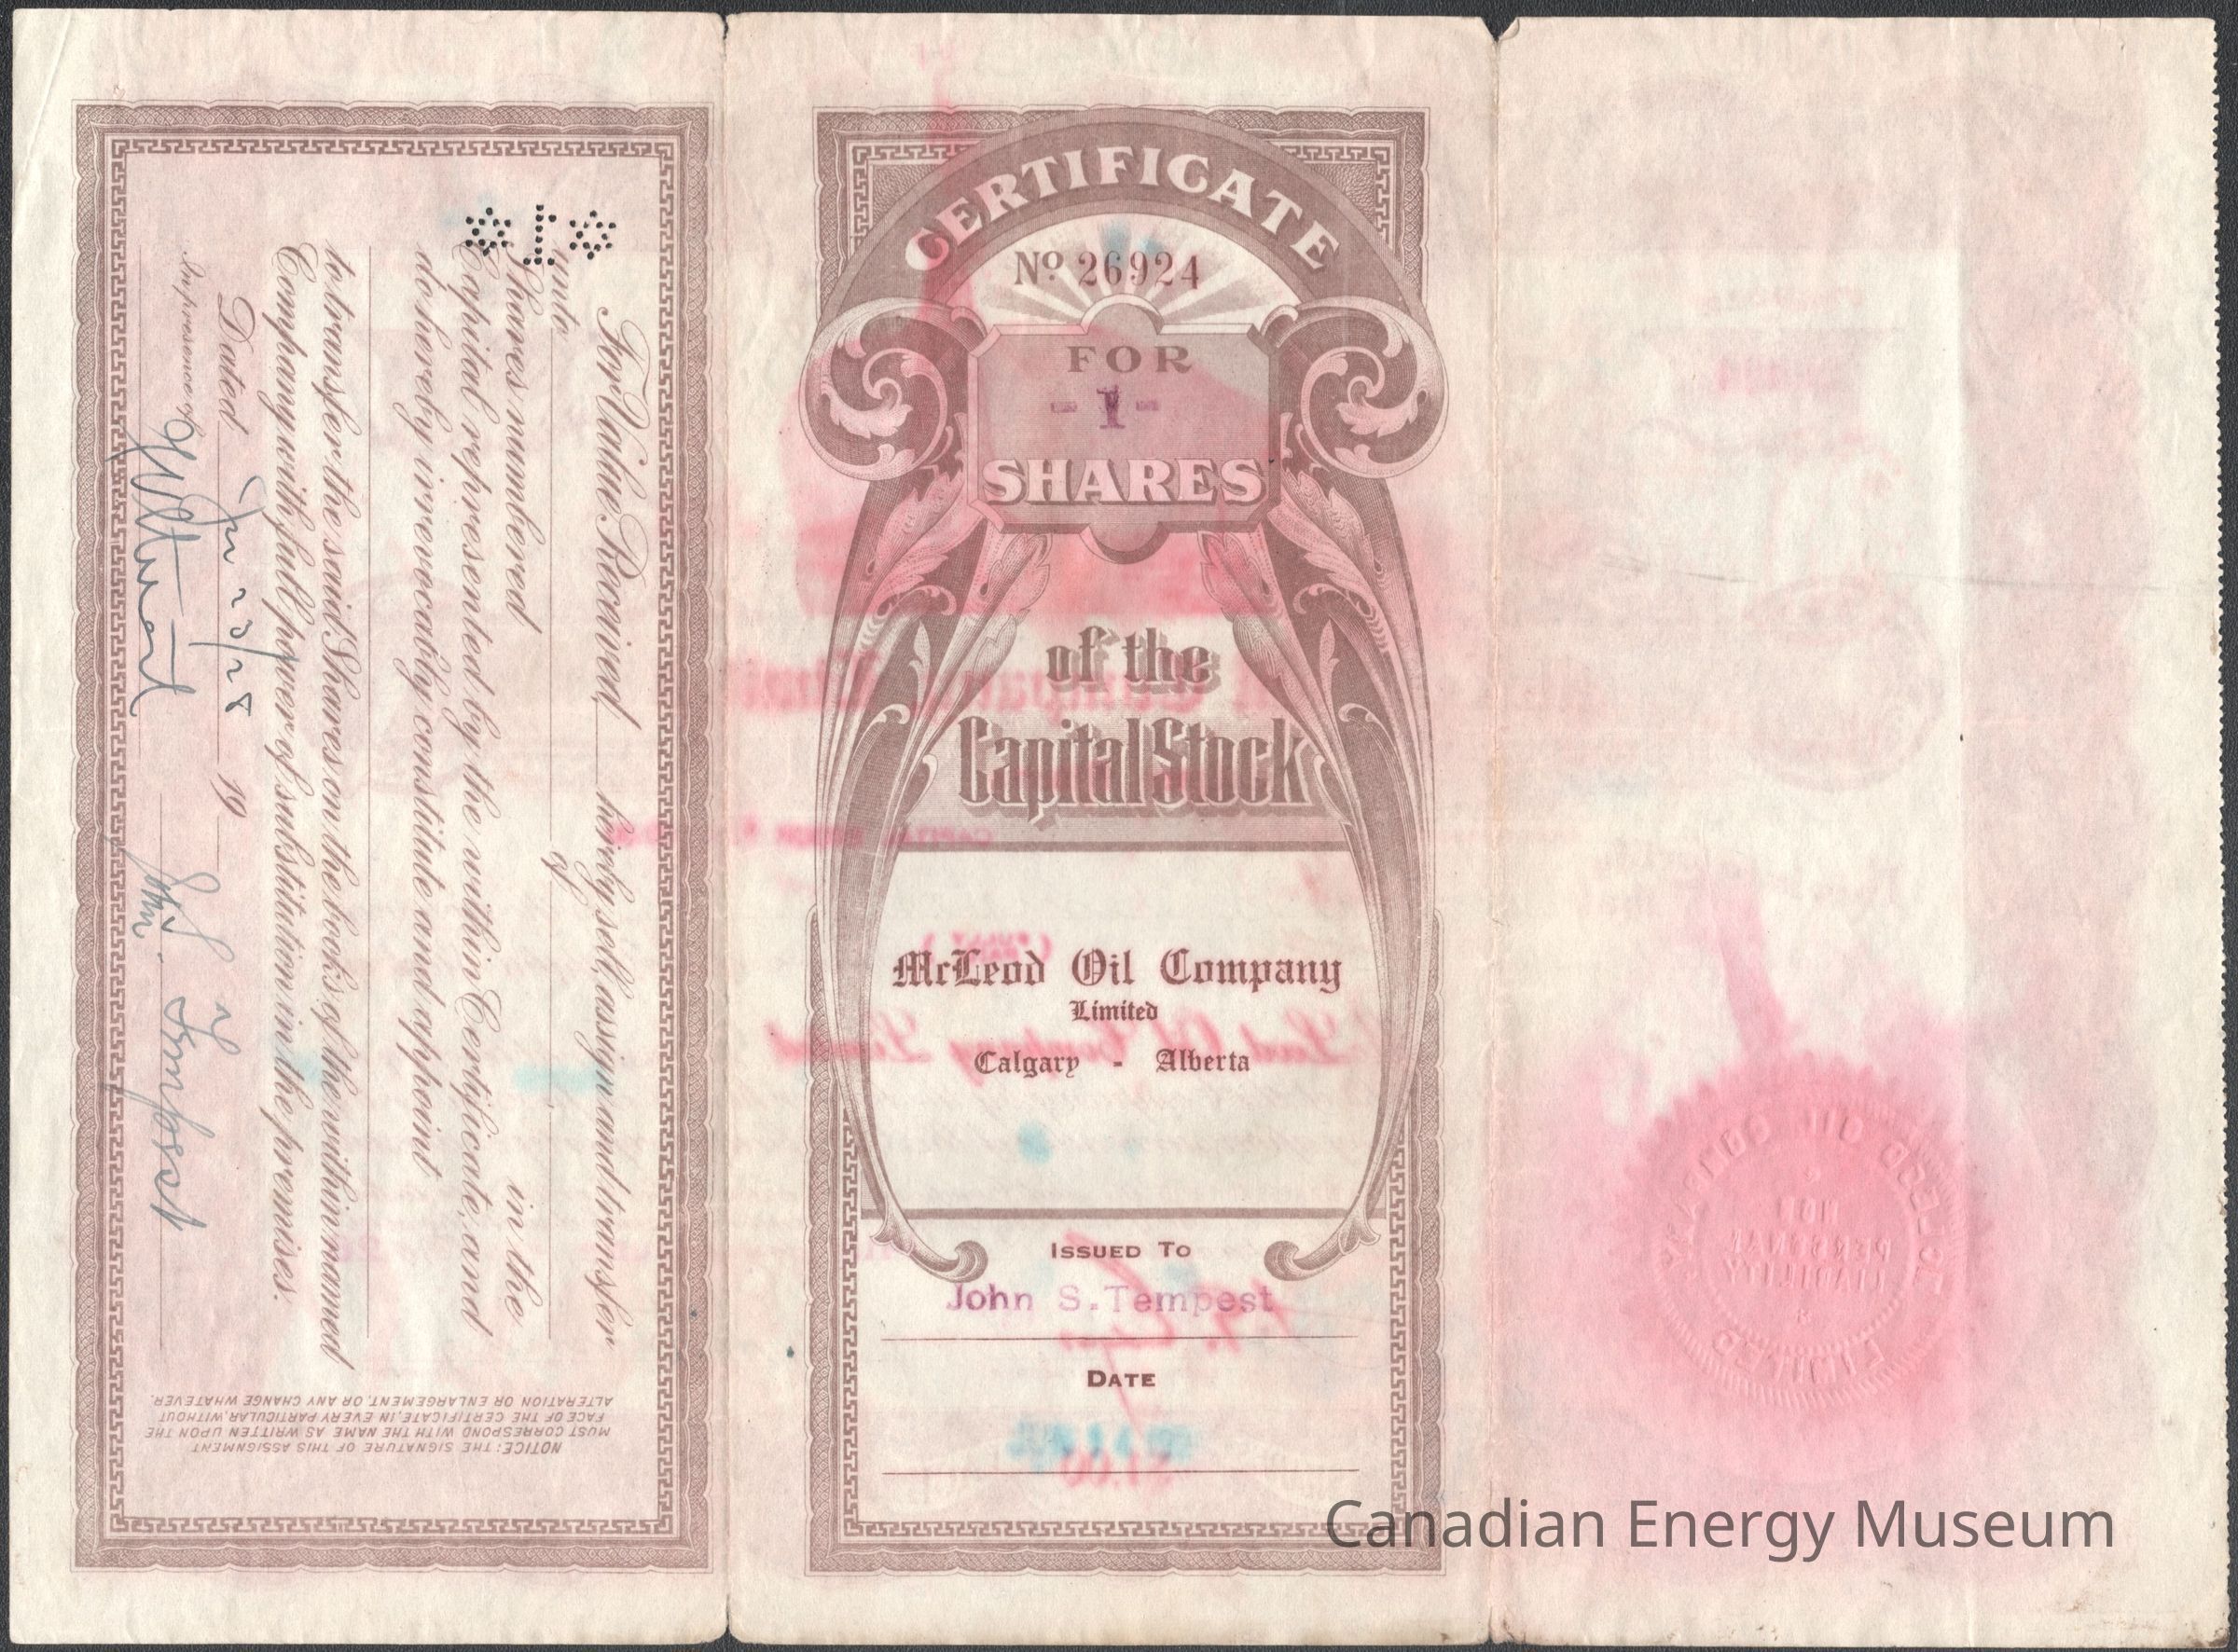 For Value Received, hereby sell, assign and transfer
unto of
Shares numbered in the
Capital represented by the within Certificate, and
do hereby irrevocably constitute and appoint
to transfer the said Shares on the books of the within named
Company with full power of substitution in the premises.
Dated 19
In presence of
John S. Tempest
NOTICE: THE SIGNATURE OF THIS ASSIGNMENT
MUST CORRESPOND WITH THE NAME AS WRITTEN UPON THE
FACE OF THE CERTIFICATE, IN EVERY PARTICULAR, WITHOUT
ALTERATION OR ENLARGEMENT, OR ANY CHANGE WHATEVER.
CERTIFICATE
No 26924
FOR
- 1 -
SHARES
of the
Capital Stock
McLeod Oil Company
Limited
Calgary - Alberta
ISSUED TO
John S. Tempest
DATE
NON
PERSONAL
LIABILITY
LIMITED
Canadian Energy Museum